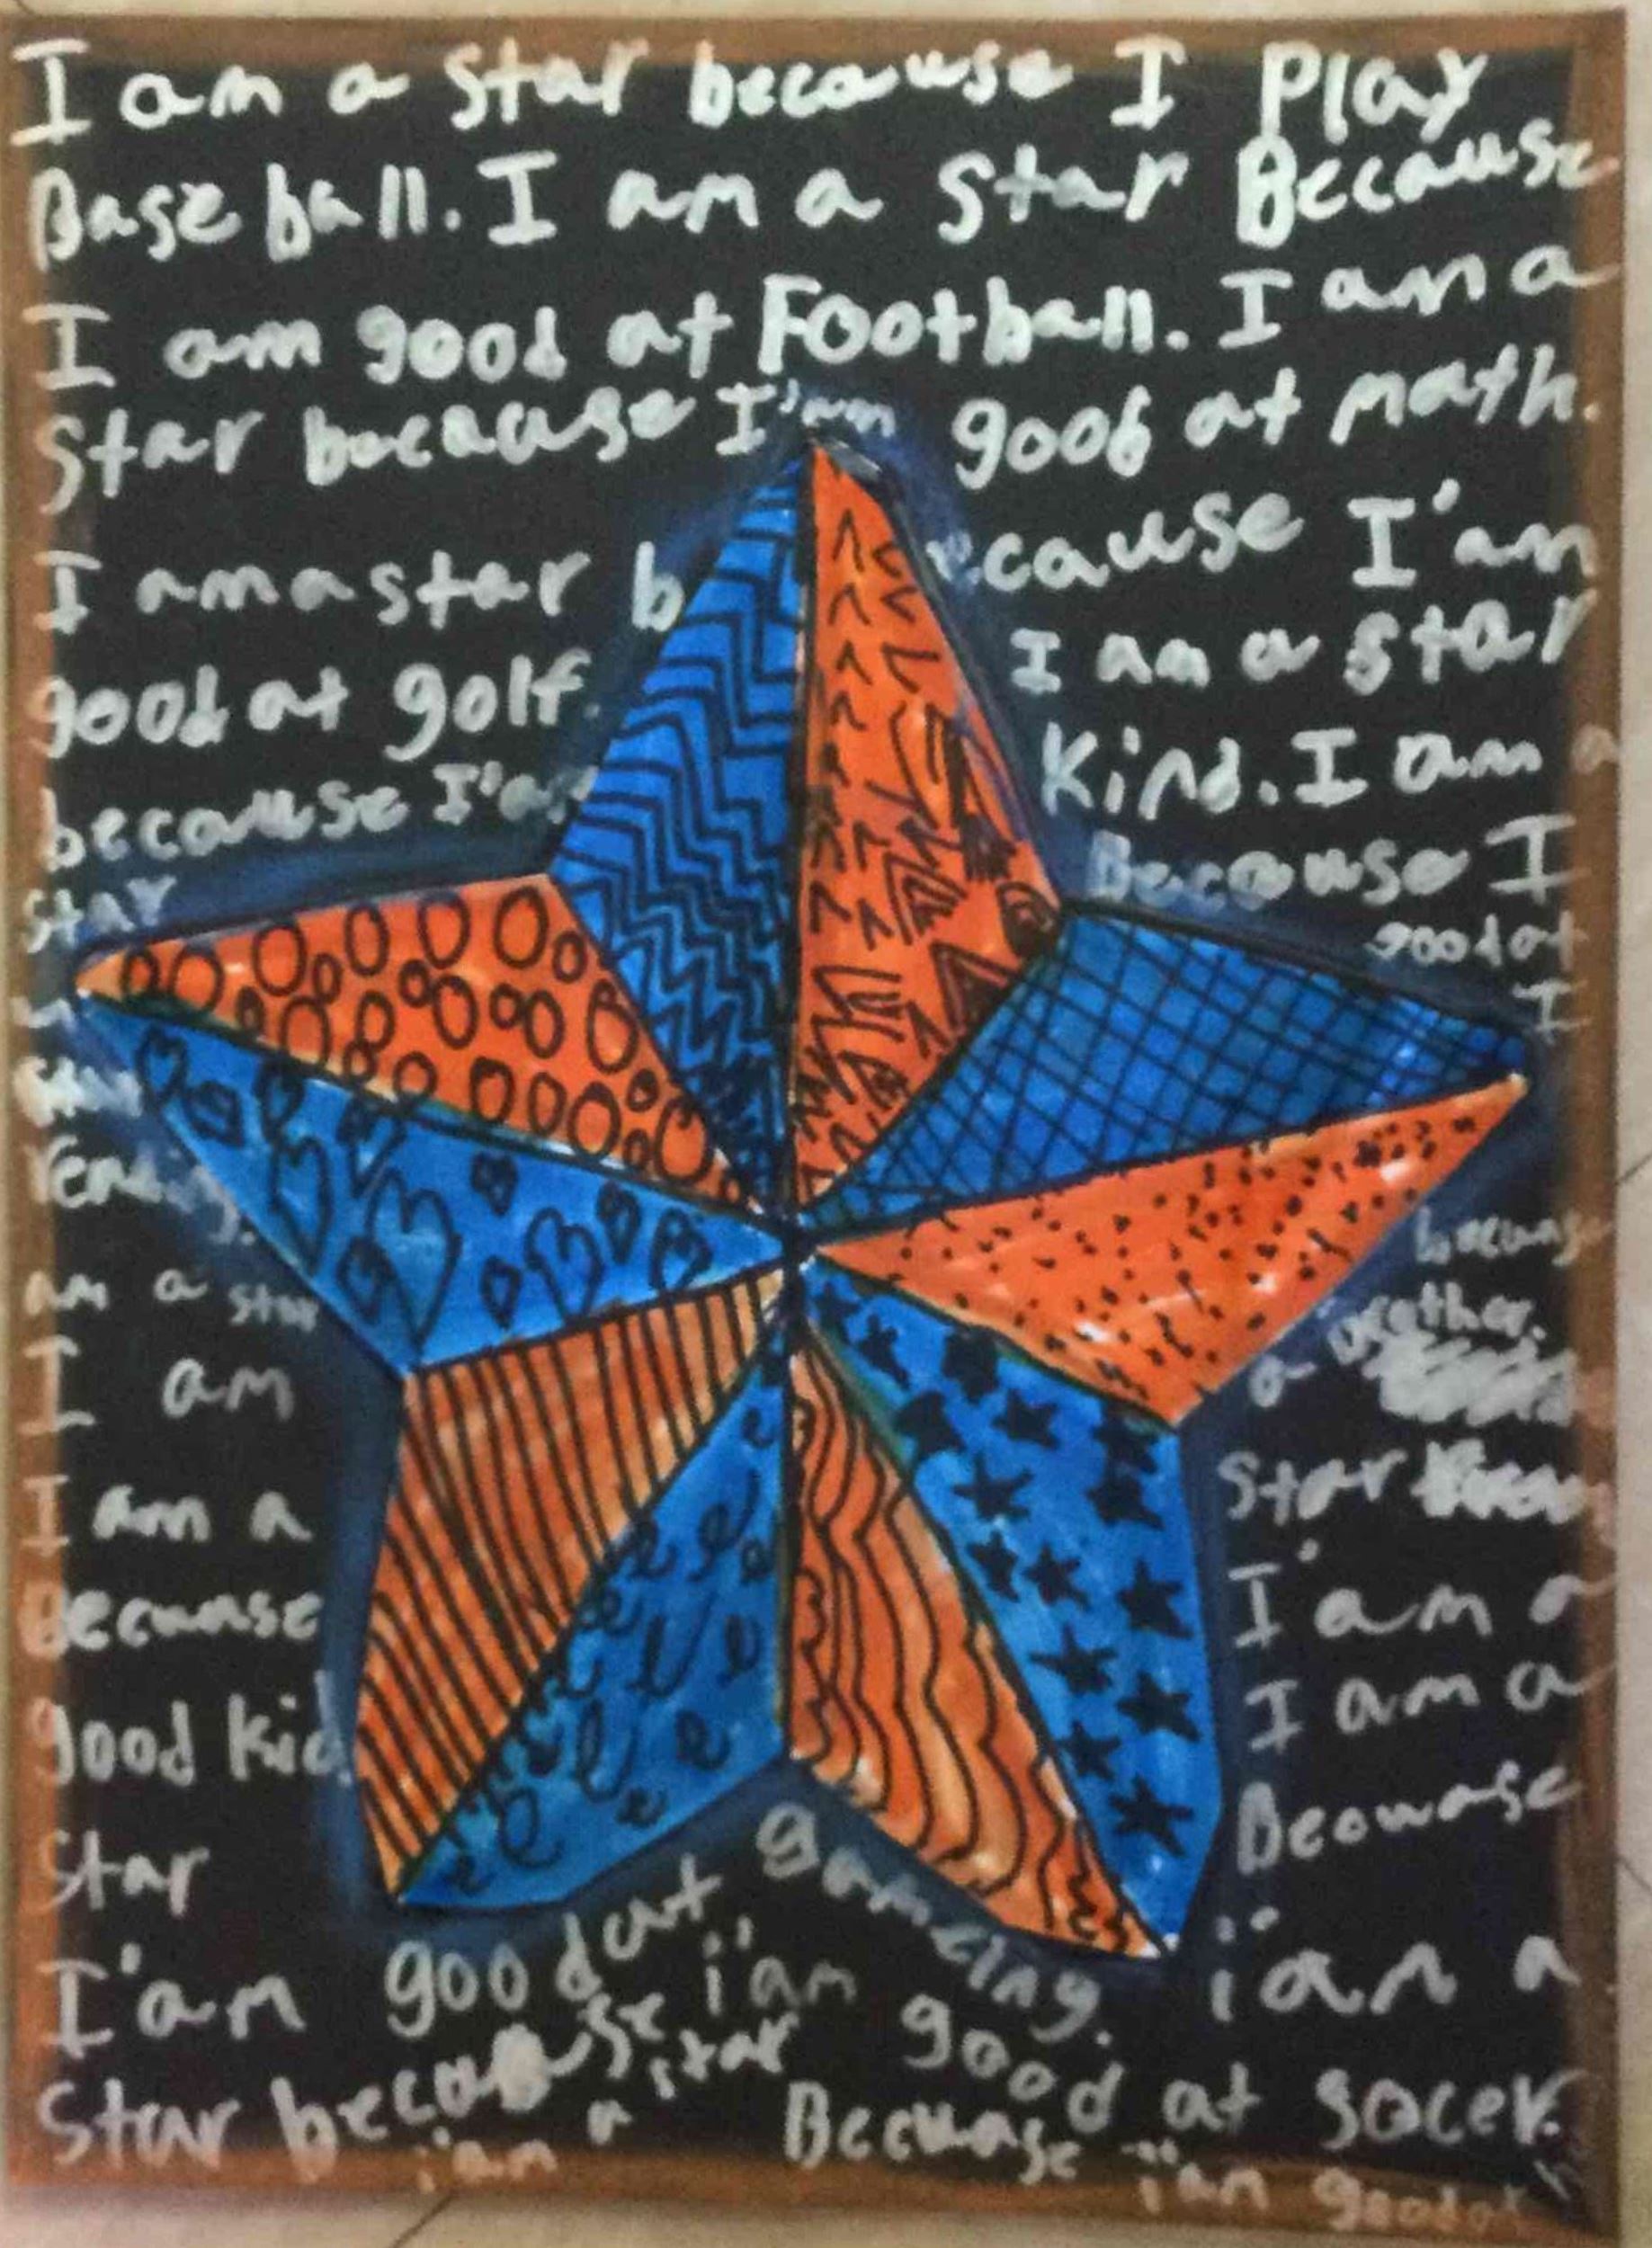 I am a star because I Play
Baseball. I am a star Because
I am good at Football. I am a
Star because I'am good at math.
I am a star b ecause I'am
good at golf. I am a star
because I'am Kind. I am a
star Because I
good at
I
am
because
am a star a brother.
I am
star
I am a I'am a
Because I am a
good kid Because
Star
I'am good at gameing. i am a
Star because i'am good at socer.
i'am a star Because i'am good at